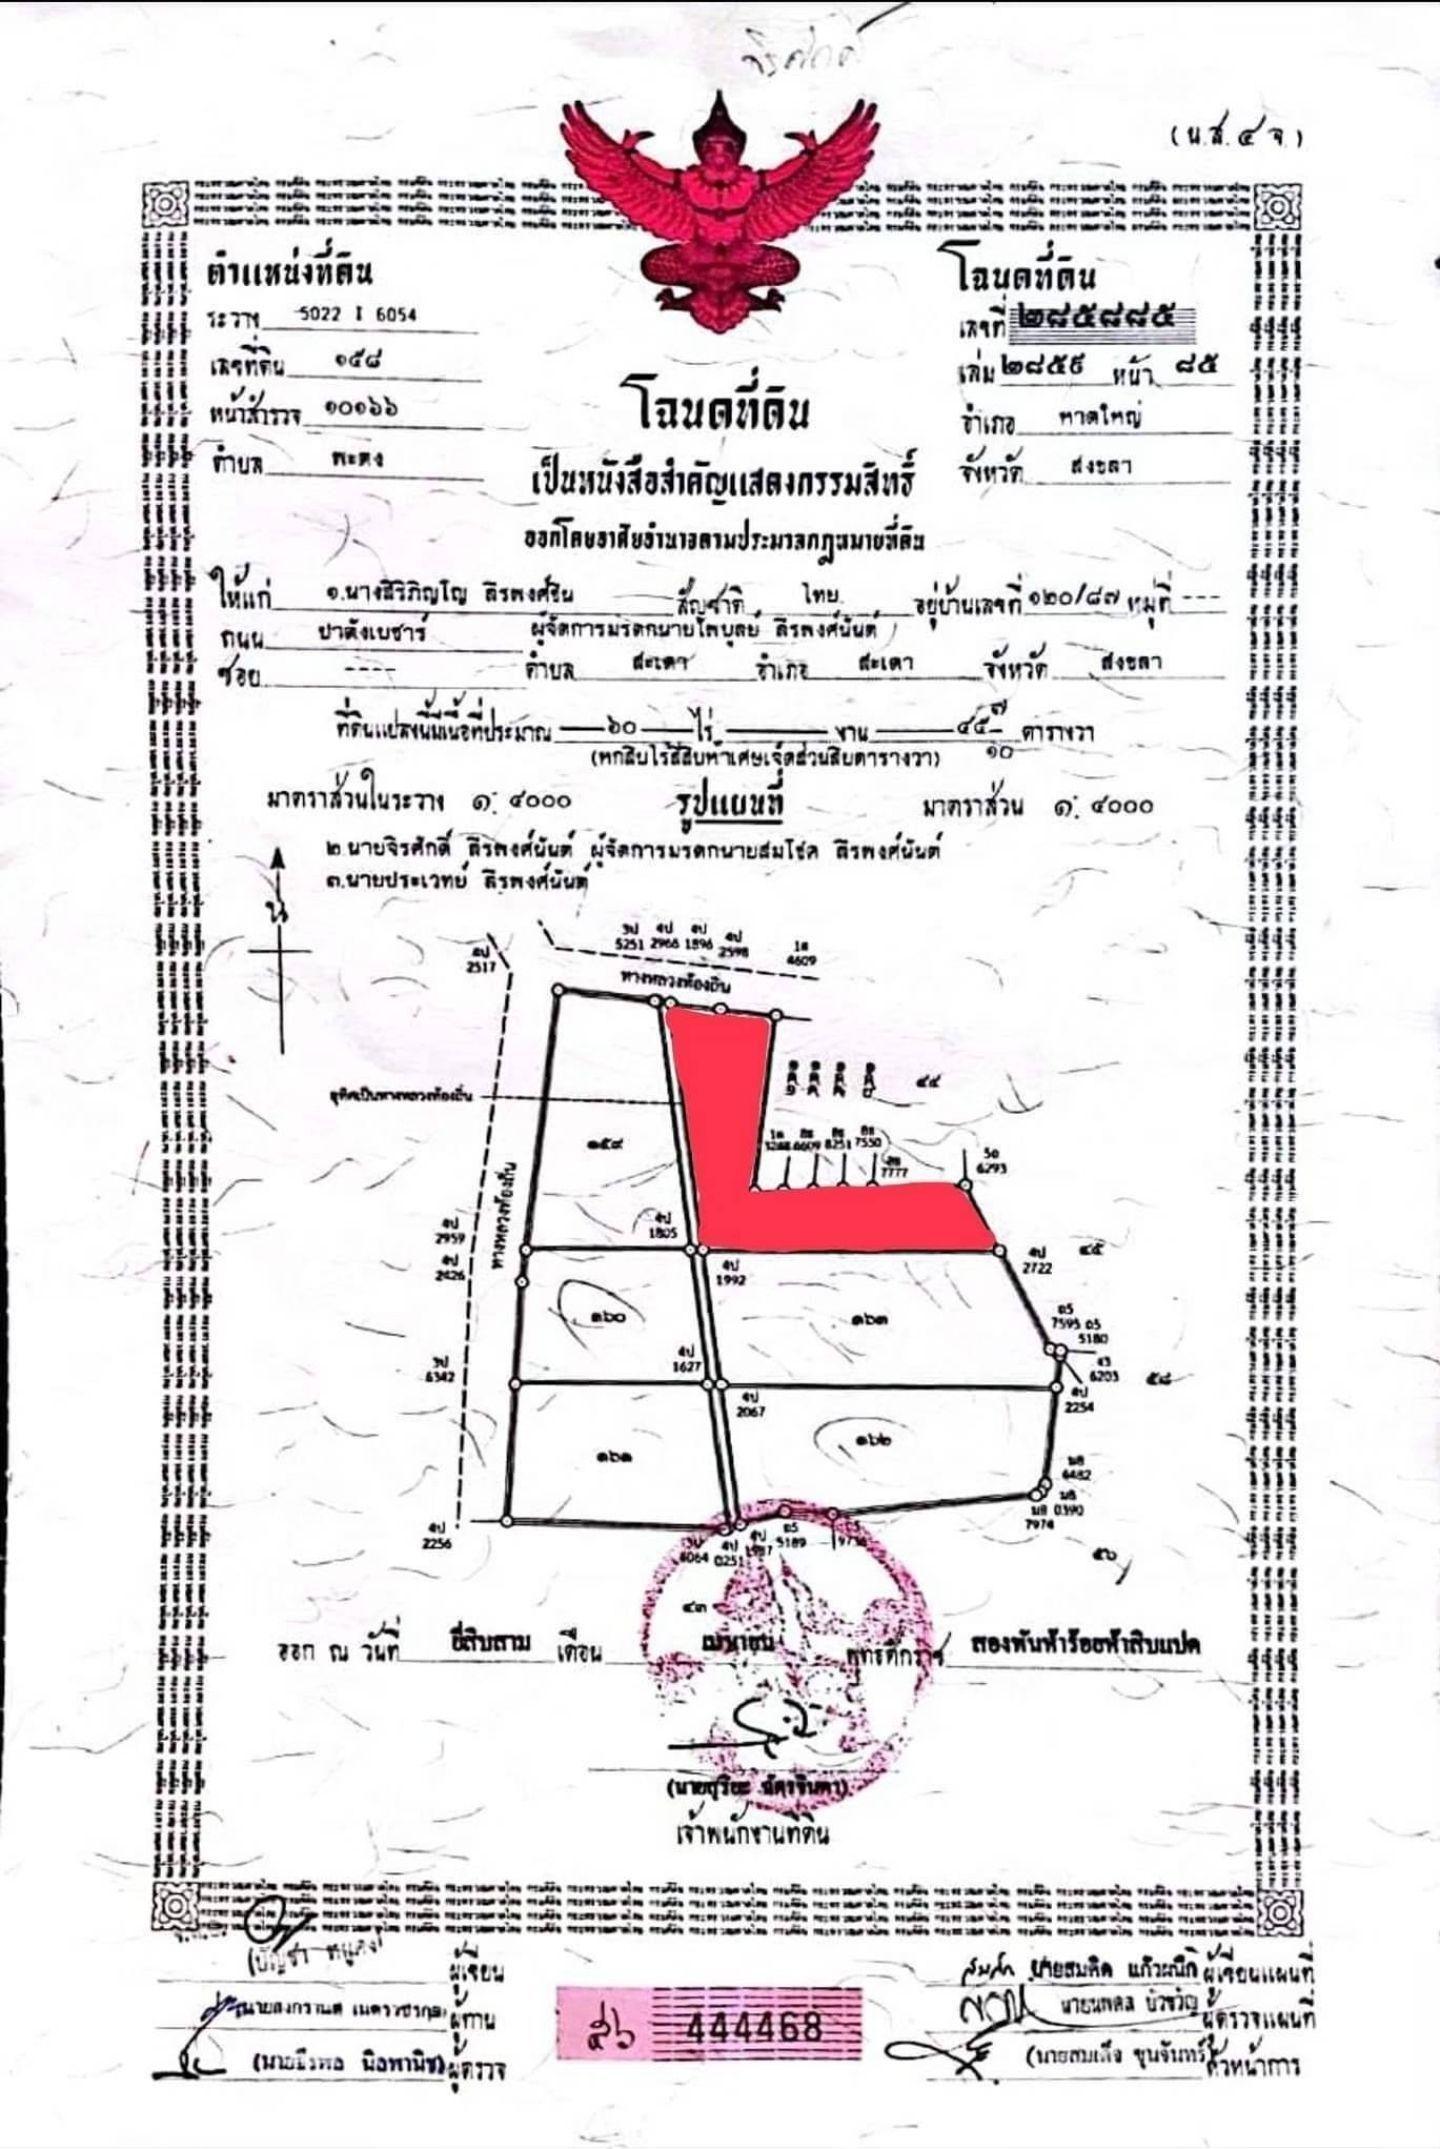 จิรศักดิ์
(น.ส.๔ จ.)
ตำแหน่งที่ดิน
ระวาง 5022 I 6054
เลขที่ดิน ๑๕๘
หน้าสำรวจ ๑๐๑๖๖
ตำบล พะตง
โฉนดที่ดิน
เลขที่ ๒๘๕๘๘๕
เล่ม ๒๘๕๙ หน้า ๘๕
อำเภอ หาดใหญ่
จังหวัด สงขลา
โฉนดที่ดิน
เป็นหนังสือสำคัญแสดงกรรมสิทธิ์
ออกโดยอาศัยอำนาจตามประมวลกฎหมายที่ดิน
ให้แก่ ๑.นางสิริภิญโญ ลิรพงศ์ธิน สัญชาติ ไทย. อยู่บ้านเลขที่ ๑๒๐/๘๗ หมู่ที่ ---
ถนน ปาดังเบซาร์ ผู้จัดการมรดกนายไพบูลย์ ลิรพงศ์นันต์
ซอย ---- ตำบล สะเดา อำเภอ สะเดา จังหวัด สงขลา
ที่ดินแปลงนี้มีเนื้อที่ประมาณ ๖๐ ไร่ งาน ๔๕ ๗/๑๐ ตารางวา
(หกสิบไร่สี่สิบห้าเศษเจ็ดส่วนสิบตารางวา)
มาตราส่วนในระวาง ๑: ๔๐๐๐ รูปแผนที่ มาตราส่วน ๑: ๔๐๐๐
๒.นายจิรศักดิ์ ลิรพงศ์นันต์ ผู้จัดการมรดกนายสมโชค ลิรพงศ์นันต์
๓.นายประเวทย์ ลิรพงศ์นันต์
น
4ป 2517
3ป 5251
4ป 2966
4ป 1896
4ป 2598
1ด 4609
ทางหลวงท้องถิ่น
อุทิศเป็นทางหลวงท้องถิ่น
ทางหลวงท้องถิ่น
๑๕๙
๔๔
6609
8251
7550
7777
5อ 6293
4ป 2959
4ป 2426
4ป 1805
4ป 1992
4ป 2722
๔๕
๑๖๐
๑๖๓
7595
5180
6203
๕๘
3ป 6342
4ป 1627
4ป 2067
4ป 2254
๑๖๑
๑๖๒
6482
0390
7974
4ป 2256
4ป 0251
5189
๕๖
๔๓
ออก ณ วันที่ ยี่สิบสาม เดือน เมษายน พุทธศักราช สองพันห้าร้อยห้าสิบแปด
(นายสุริยะ ฉัตรจินดา)
เจ้าพนักงานที่ดิน
ผู้เขียน
ผู้ทาน
ผู้ตรวจ
๕๖ 444468
นายสมคิด แก้วผนึก ผู้เขียนแผนที่
นายนพดล บัวขวัญ ผู้ตรวจแผนที่
(นายสมเด็จ ขุนจันทร์) หัวหน้าการ